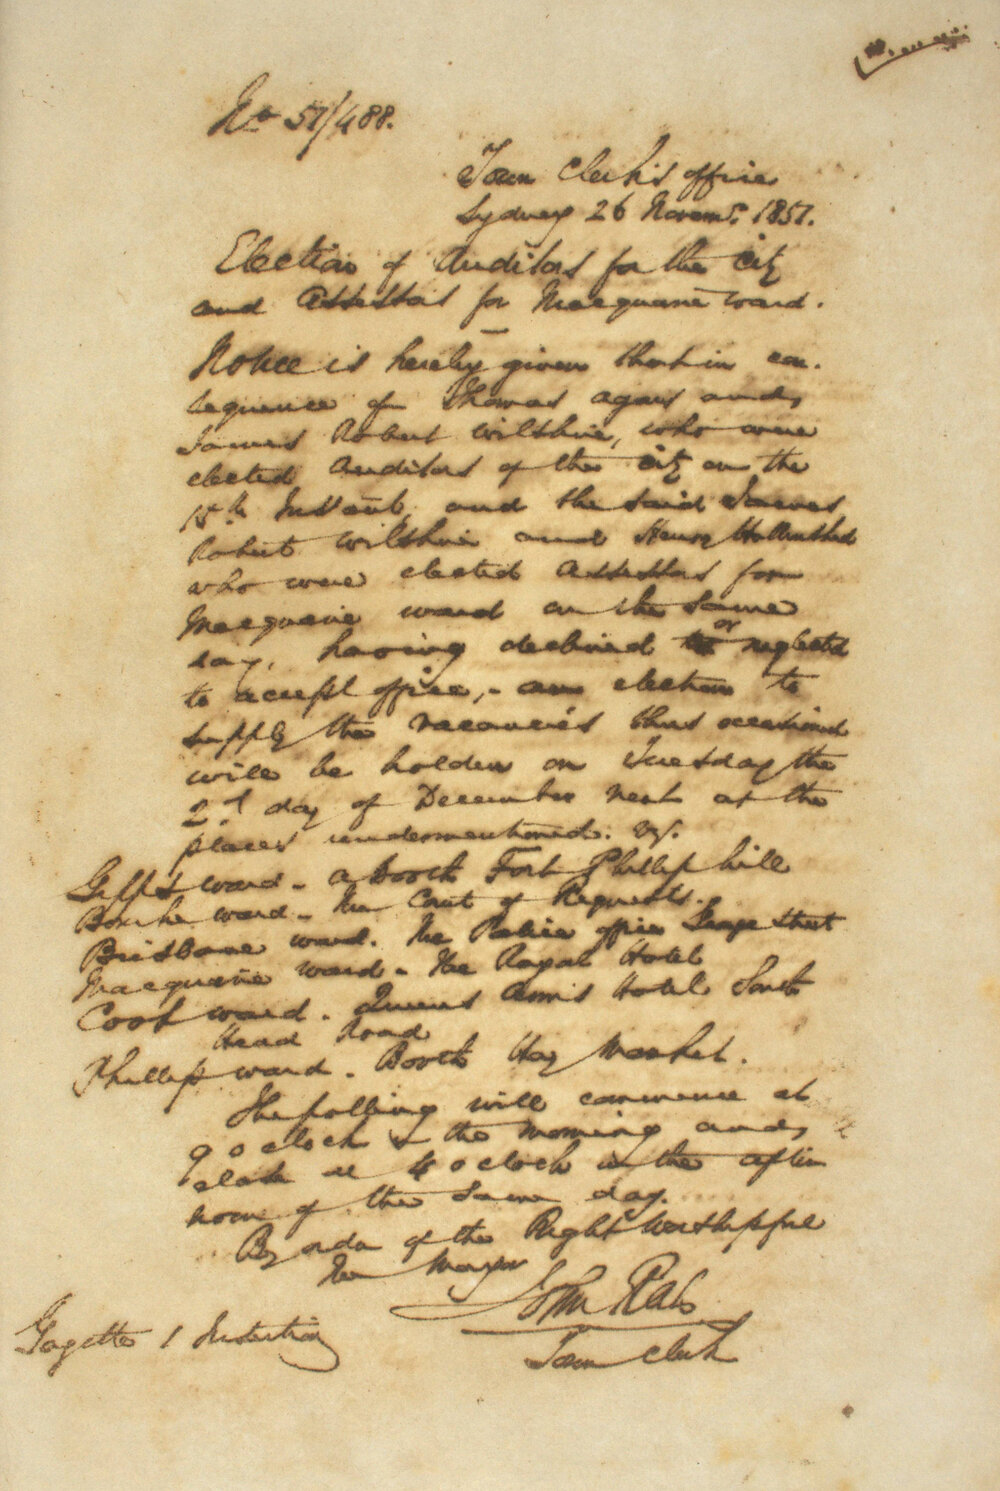 No 51/488.
Town Clerk's office
Sydney 26 Novemr. 1851.
Election of Auditors for the City
and Assessors for Macquarie ward.
Notice is hereby given that in con-
sequence of Thomas Agars and
James Robert Wilshire, who were
elected Auditors of the City on the
15th Instant and the said James
Robert Wilshire and Henry Hollinshed
who were elected Assessors for
Macquarie ward on the same
day, having declined or neglected
to accept office, - an election to
supply the vacancies thus occasioned
will be holden on Tuesday the
2d day of December next at the
places undermentioned. vz.
Gipps ward - a booth Fort Phillip hill
Bourke ward - The Court of Requests.
Brisbane ward. The Police office George Street
Macquarie ward - The Royal Hotel
Cook ward - Queens Arms Hotel South
Head Road
Phillip ward - Booth Hay Market.
The polling will commence at
9 o clock in the morning and
close at 4 o clock in the after
noon of the same day.
By order of the Right Worshipful
the Mayor
John Rae
Town Clerk
Gazette 1 Insertion